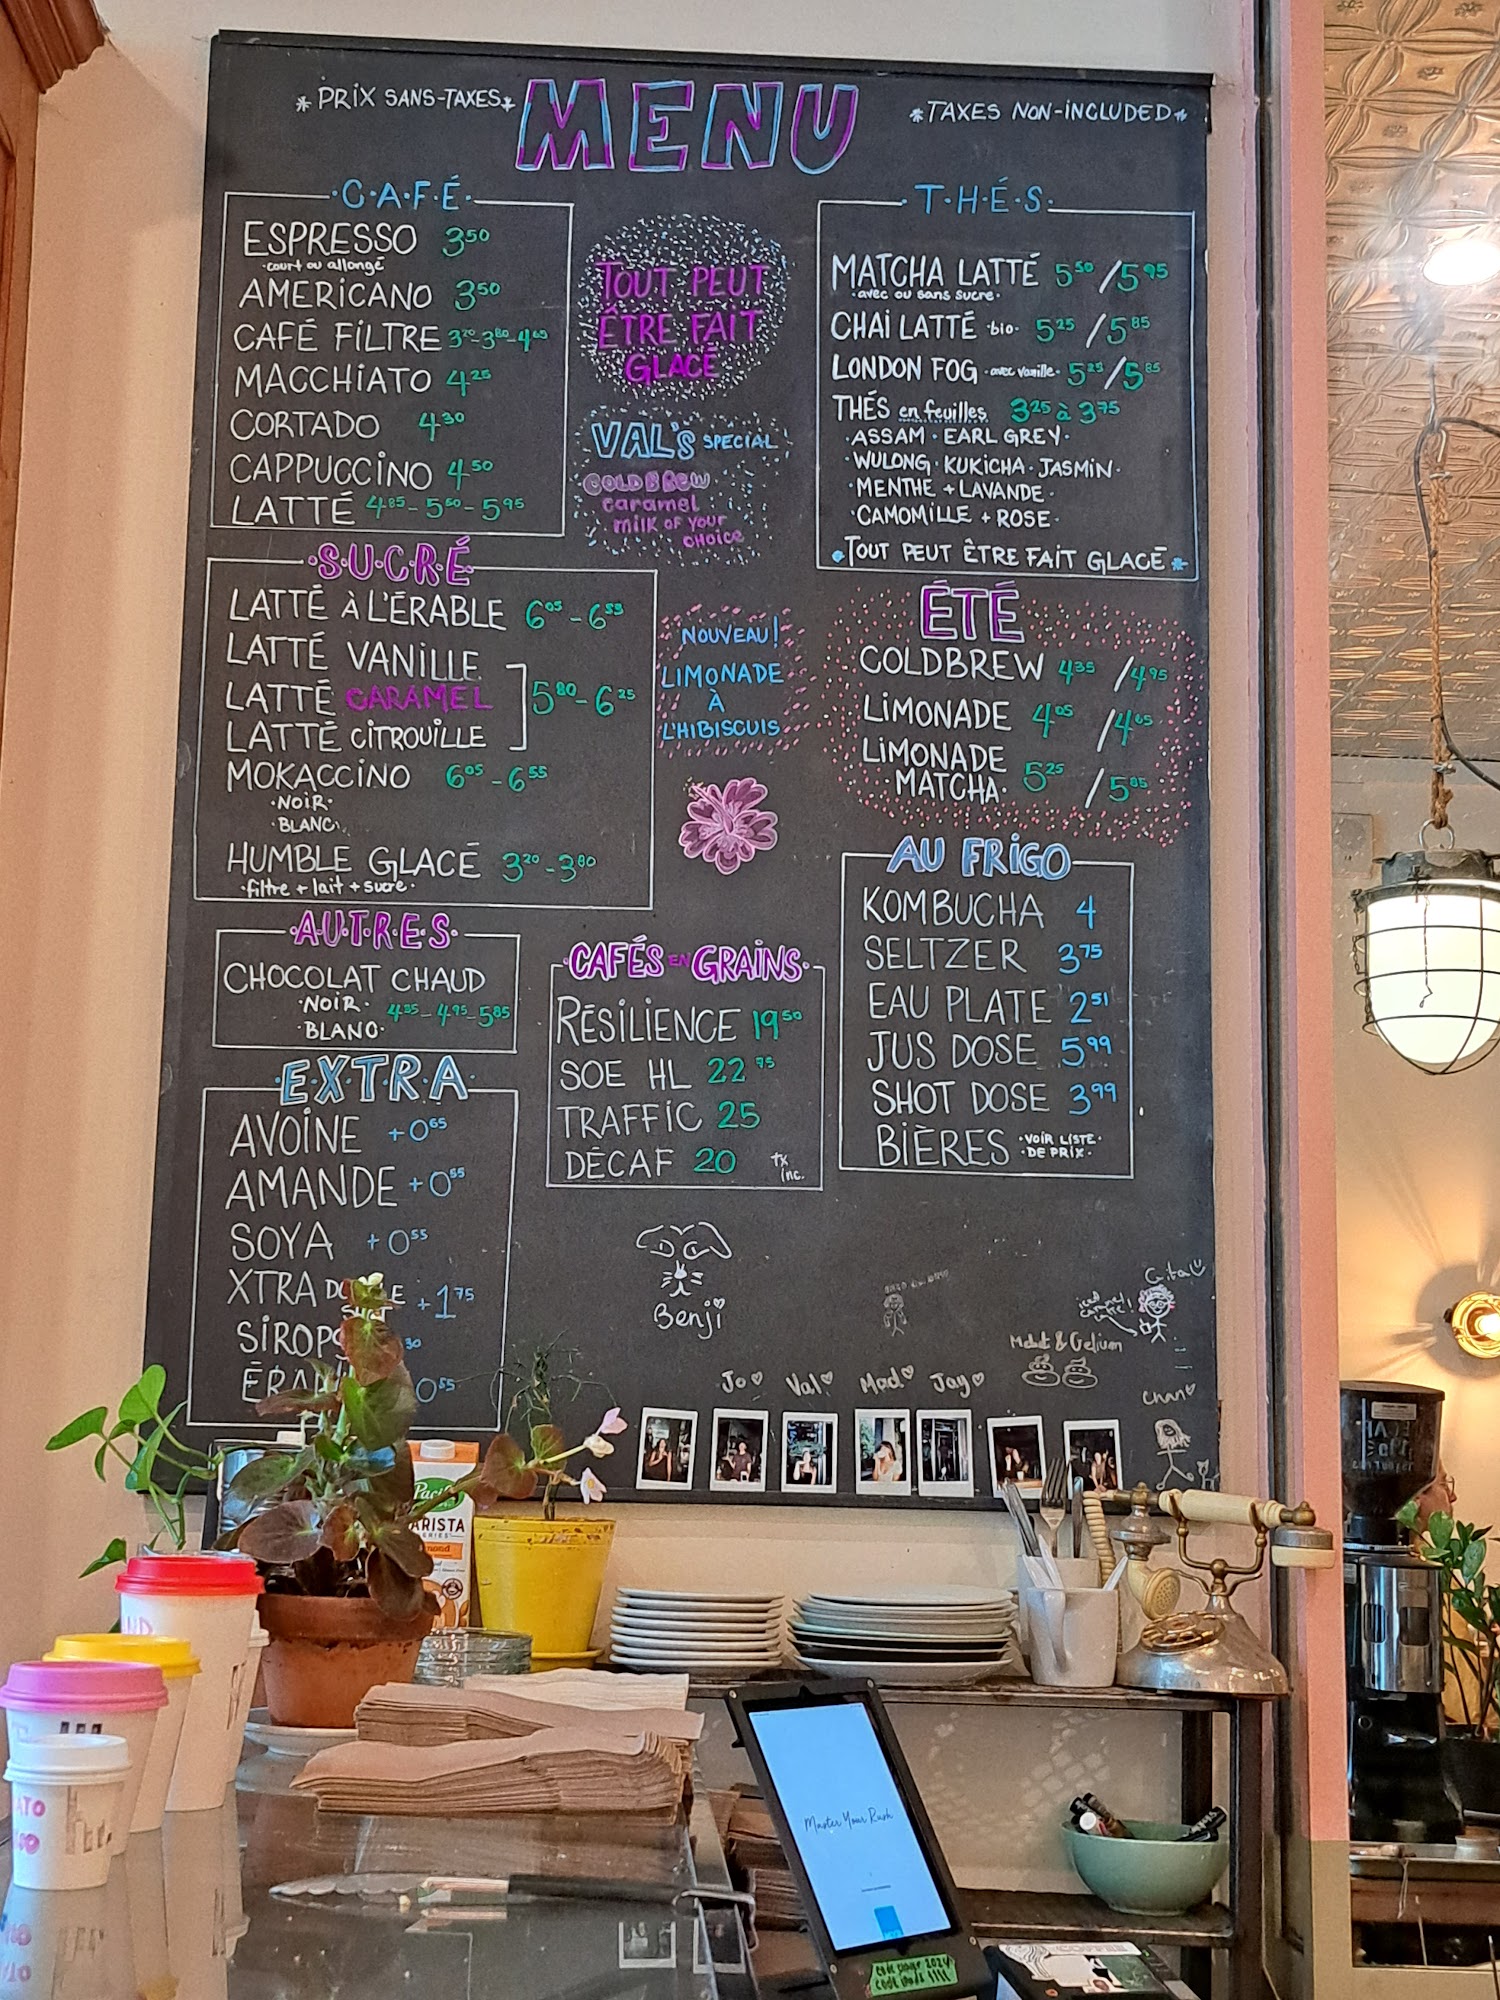 * PRIX SANS-TAXES *
MENU
* TAXES NON-INCLUDED *
·C·A·F·É·
ESPRESSO 3 50
·court ou allongé
AMERICANO 3 50
CAFÉ FILTRE 3 20 - 3 80 - 4 65
MACCHIATO 4 25
CORTADO 4 30
CAPPUCCINO 4 50
LATTÉ 4 85 - 5 50 - 5 95
TOUT PEUT
ÊTRE FAIT
GLACÉ
VAL'S SPECIAL
COLD BREW
caramel
milk of your
choice
·T·H·É·S·
MATCHA LATTÉ 5 50 / 5 95
·avec ou sans sucre·
CHAI LATTÉ ·bio· 5 25 / 5 85
LONDON FOG ·avec vanille· 5 25 / 5 85
THÉS en feuilles 3 25 à 3 75
·ASSAM · EARL GREY·
·WULONG · KUKICHA · JASMIN·
·MENTHE + LAVANDE·
·CAMOMILLE + ROSE·
*TOUT PEUT ÊTRE FAIT GLACÉ*
·S·U·C·R·É
LATTÉ À L'ÉRABLE 6 05 - 6 55
LATTÉ VANILLE
LATTÉ CARAMEL 5 80 - 6 25
LATTÉ CITROUILLE
MOKACCINO 6 05 - 6 55
·NOIR·
·BLANC·
HUMBLE GLACÉ 3 20 - 3 80
·filtre + lait + sucre·
NOUVEAU!
LIMONADE
À
L'HIBISCUIS
ÉTÉ
COLDBREW 4 35 / 4 95
LIMONADE 4 05 / 4 65
LIMONADE
·MATCHA· 5 25 / 5 85
·A·U·T·R·E·S·
CHOCOLAT CHAUD
·NOIR·
·BLANC·
4 35 - 4 95 - 5 85
·CAFÉS EN GRAINS·
RÉSILIENCE 19 50
SOE HL 22 75
TRAFFIC 25
DÉCAF 20 tx
inc.
AU FRIGO
KOMBUCHA 4
SELTZER 3 75
EAU PLATE 2 51
JUS DOSE 5 99
SHOT DOSE 3 99
BIÈRES ·VOIR LISTE·
·DE PRIX·
·E·X·T·R·A·
AVOINE +0 65
AMANDE +0 55
SOYA +0 55
XTRA +1 75
30
0 55
Benji
Gita
iced
caramel
Jo Val Mad Jay
& Gelium
Chan
BARISTA
Master Your Rush